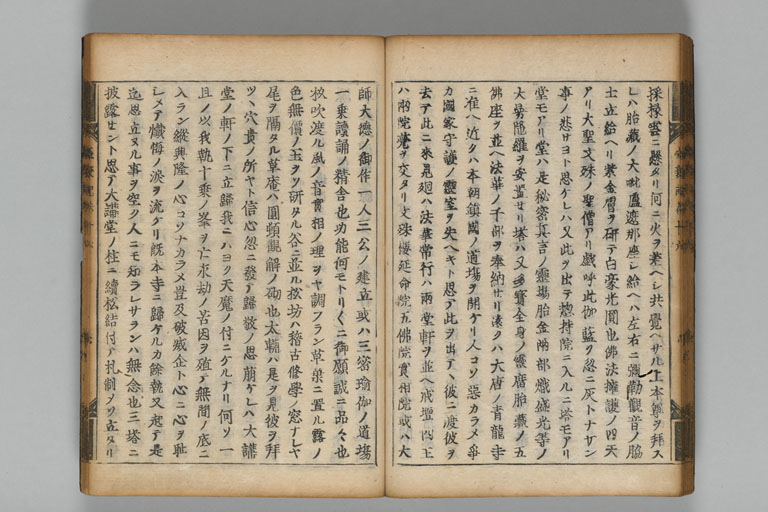 採椽雲ニ懸タリ何ニ火ヲ差ヘシ共覺ヘサル上本尊ヲ拜ス
レハ胎藏ノ大毗盧遮那座シ給ヘハ左右ニ彌勒觀音ノ脇
士立給ヘリ紫金膚ヲ研テ白豪光閑也佛法擁護ノ四天
アリ大聖文殊ノ聖僧アリ戲呼此伽藍ヲ忽ニ灰トナサン
事ノ悲サヨト思ケレハ又此ヲ出テ惣持院ニ入ルニ塔モアリ
堂モアリ堂ハ是秘密真言ノ靈場胎金兩部熾盛光等ノ
大曼陁羅ヲ安置セリ塔ハ又多寶全身ノ靈廟胎藏ノ五
佛座ヲ並ヘ法華ノ千部ヲ奉納セリ遠クハ大唐ノ青龍寺
ニ准ヘ近クハ本朝鎮國ノ道場ヲ開ケリ人コソ惡カラメ爭
カ國家守護ノ靈室ヲ失ヘキト思テ此ヲ出テ彼ニ渡彼ヲ
去テ此ニ來見廻ハ法華常行ハ兩堂軒ヲ並ヘ戒壇四王
ハ兩院甍ヲ交タリ文殊樓延命院五佛院實相院或ハ大
師大德ノ御作一人三公ノ建立或ハ三密瑜伽ノ道場
一乗讀誦ノ精舎也功能何モトリ〱ニ御願誠ニ品々也
枚吹渡ル風ノ音實相ノ理ヲヤ調フラン草葉ニ置ル露ノ
色無價ノ玉ヲソ研タル谷ニ並ル松坊ハ稽古修學ノ窓ナレヤ
尾ヲ隔タル草庵ハ圓頓觀解ノ砌也太輙ハ是ヲ見彼ヲ拜
ツヽ穴貴ノ所ヤト信心忽ニ發テ歸敬ノ思崩ケレハ大講
堂ノ軒ノ下ニ立歸我ニハヨク天魔ノ付ニケルナリ何ソ一
且ノ以我執十乗ノ峯ヲ亡永劫ノ苦因ヲ殖テ無間ノ底ニ
入ラン縱興隆ノ心コソナカラメ豈及破滅企ト心ニ心ヲ耻
シメテ懺悔ノ淚ヲ流ケリ既本寺ニ歸ケルカ餘執又起テ是
迄思立ヌル事ヲ空ク人ニモ知ラレサランハ無念也三塔ニ
披露せント思テ大講堂ノ柱ニ續松結付テ札制ノソ立タリ